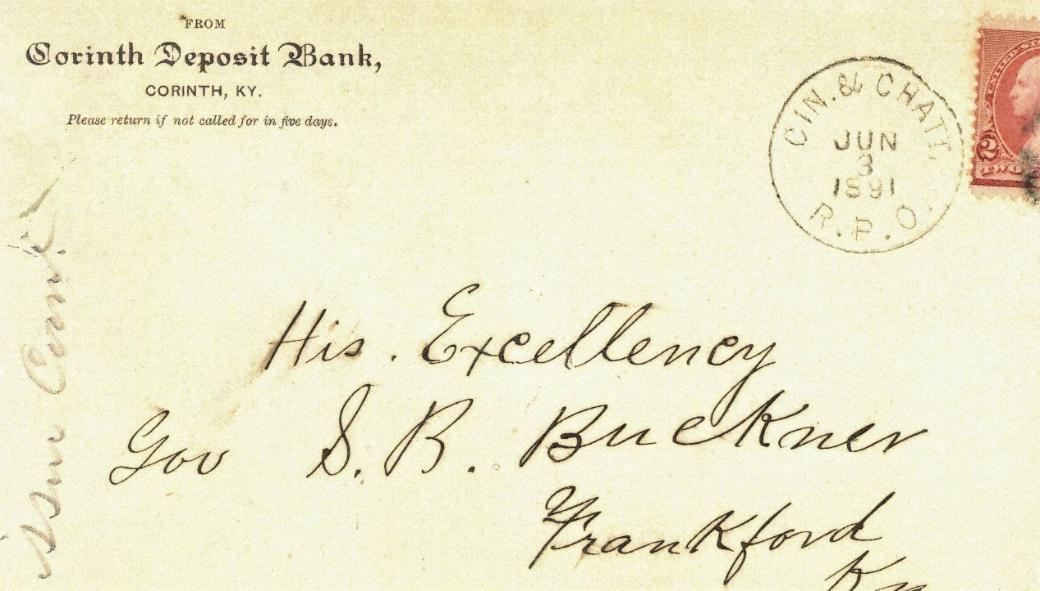 FROM
Corinth Deposit Bank,
CORINTH, KY.
Please return if not called for in five days.
CIN. & CHATT.
JUN
3
1891
R.P.O.
UNITED
2
TWO
His. Excellency
Gov S. B. Buckner
Frankford
Ky